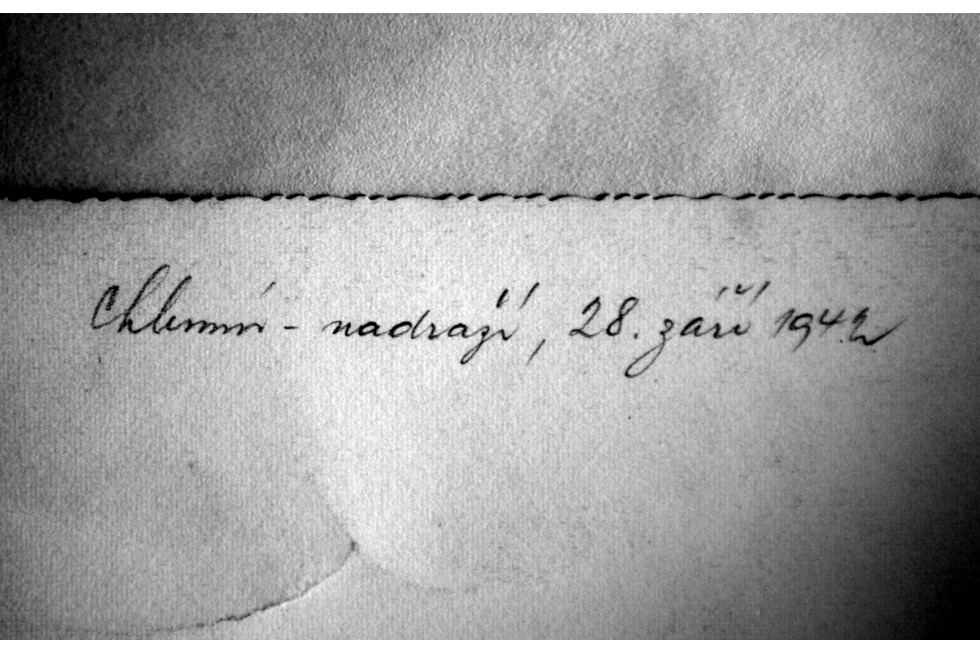 Chlumín - nadraží, 28. září 1942